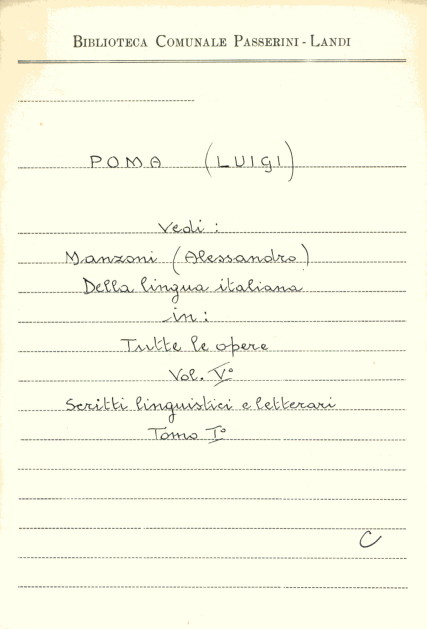 BIBLIOTECA COMUNALE PASSERINI - LANDI
POMA (LUIGI)
Vedi :
Manzoni (Alessandro)
Della lingua italiana
in :
Tutte le opere
Vol. V°
Scritti linguistici e letterari
Tomo I°
C